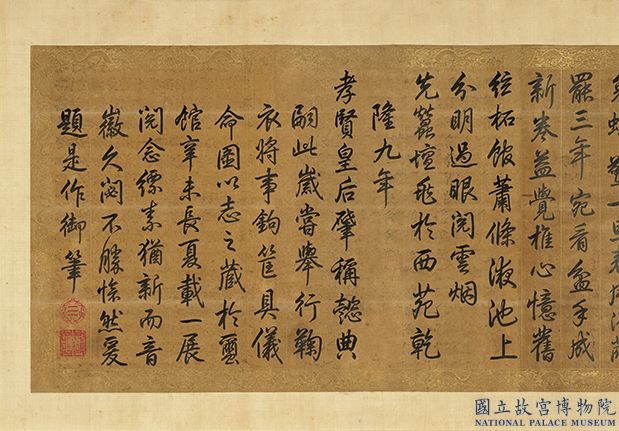 罷三年宛看盆手成
新卷益覺椎心憶舊
柘館蕭條液池上
分明過眼閱雲烟
先蠶壇於西苑乾
隆九年
孝賢皇后肇稱懿典
嗣此歲嘗舉行鞠
衣將事鉤筐具儀
命圖以志之藏於繭
館辛未長夏載一展
閱念縹素猶新而音
徽久閟不勝愴然爰
題是作御筆
國立故宮博物院
NATIONAL PALACE MUSEUM